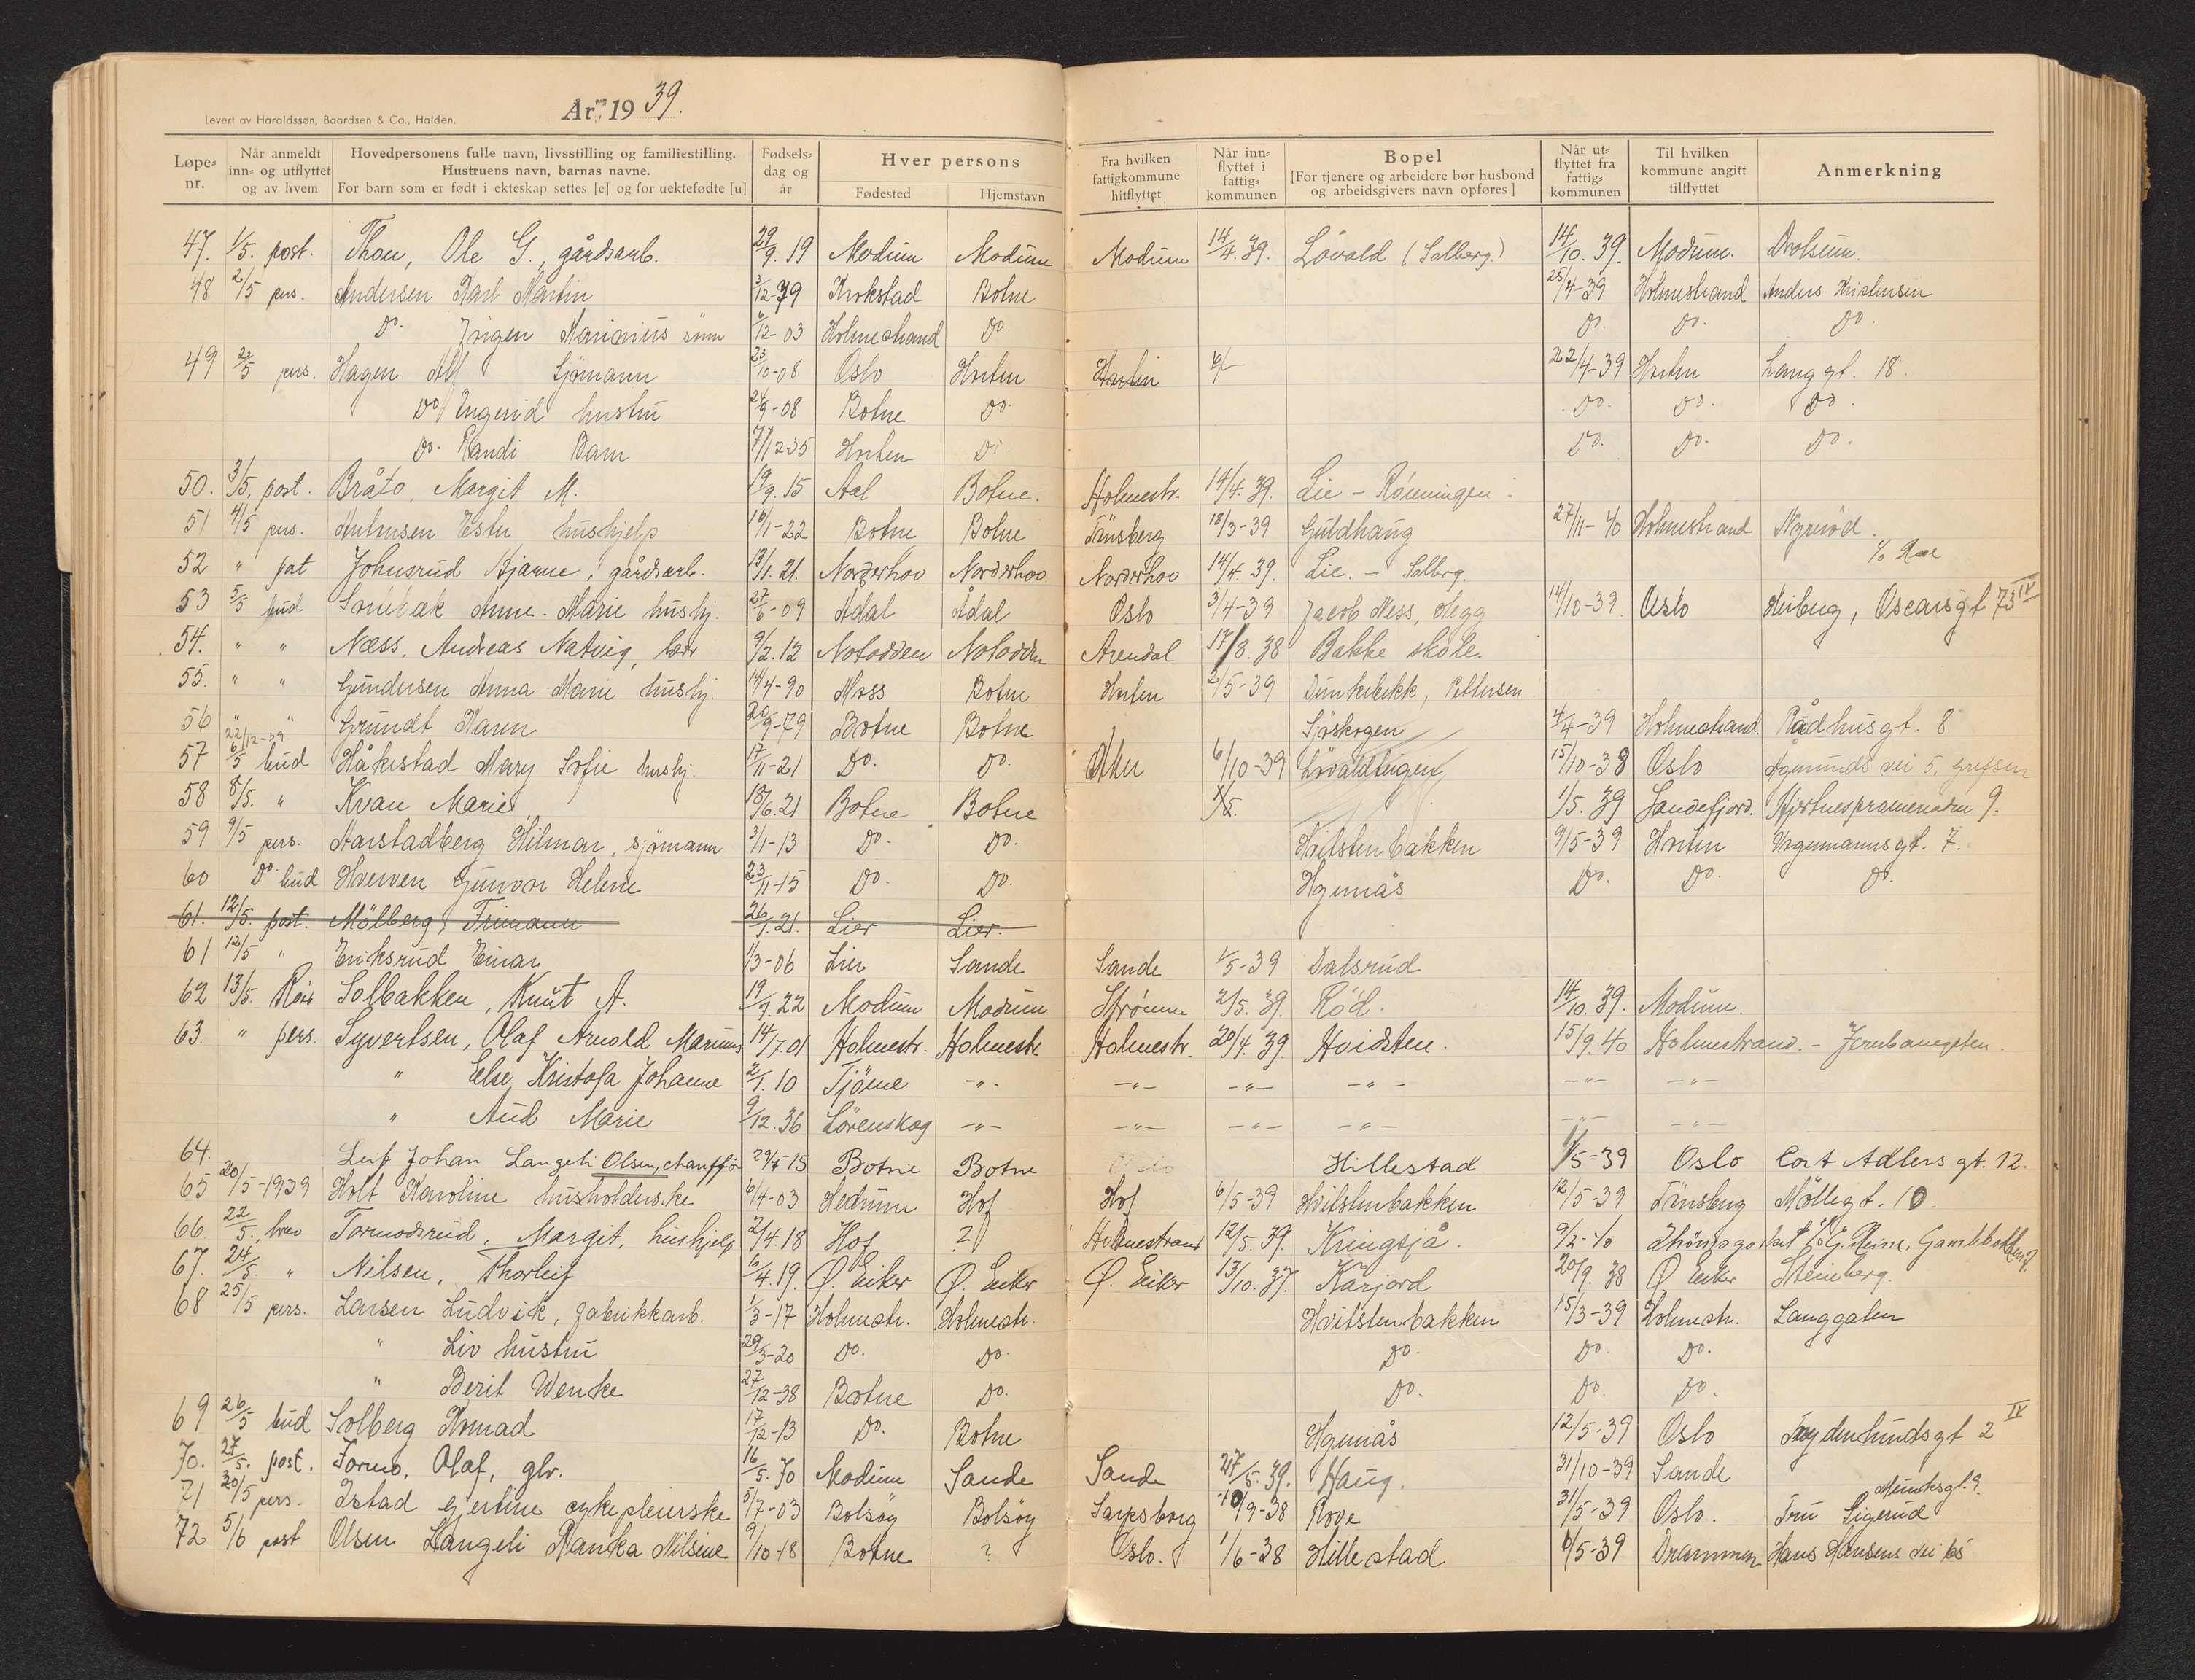 År 1939.
Levert av Haraldssøn, Baardsen & Co., Halden.
Løpe-nr. Når anmeldt inn- og utflyttet og av hvem Hovedpersonens fulle navn, livsstilling og familiestilling. Hustruens navn, barnas navne. For barn som er født i ekteskap settes [e] og for uektefødte [u] Fødselsdag og år Hver persons Fødested Hjemstavn Fra hvilken fattigkommune hitflyttet Når innflyttet i fattigkommunen Bopel [For tjenere og arbeidere bør husbond og arbeidsgivers navn opføres] Når utflyttet fra fattigkommunen Til hvilken kommune angitt tilflyttet Anmerkning
47. 1/5. post. Thoen, Ole G., gårdsarb. 29/9. 19 Modum Modum Modum 14/4. 39. Løvald (Solberg.) 14/10. 39. Modum. Drolsum.
48 2/5 pers. Andersen Karl Martin 3/12-79 Krokstad Botne 25/4-39 Holmestrand Anders Kristensen
Do. Jørgen Marinius sønn 6/12-03 Holmestrand Do. Do. Do. Do.
49 2/5 pers. Hagen Alf Sjømann 23/10-08 Oslo Horten Horten 22/4-39 Horten Langgt. 18.
Do. Engerid hustru 24/9-08 Botne Do. Do. Do. Do.
Do. Randi Barn 7/12-35 Horten Do. Do. Do. Do.
50. 3/5. post. Bråto, Margit M. 19/9. 15 Aal Botne. Holmestr. 14/4. 39. Lie - Rønningen.
51 4/5 pers. Ester hushjelp 16/1-22 Botne Botne Tønsberg 18/3-39 Guldhaug 27/11-40 Holmestrand Nyrød.
52 " pat Johnsrud Bjarne, gårdsarb. 13/11. 21. Norderhov Norderhov Norderhov 14/4. 39. Lie. - Solberg.
c/o
53 5/5 bud Sørebæk Anne-Marie hushj. 27/6-09 Ådal Ådal Oslo 3/4-39 Jacob Ness, Hegg 14/10-39. Oslo Heiberg, Oscarsgt 73 IV
54. " " Næss, Andreas Natvig, lær 9/2. 12 Notodden Notodden Arendal 17/8. 38 Bakke skole.
55. " " Gundersen Anna Marie hushj. 14/4-90 Moss Botne Horten 2/5-39 Dunkebekk, Pettersen
56 " " Grundt Karen 20/9-79 Botne Botne Sjøskogen 4/4-39 Holmestrand. Rådhusgt. 8
22/12-39
57 6/5 bud Håkestad Mary Sofie hushj. 17/11-21 Do. Do. Aker 6/10-39 Løvaldteigen 15/10-38 Oslo Ågmunds vei 5, Grefsen
58 8/5. " Kvan Marie 18/6. 21 Botne Botne 1/5. 39 Sandefjord. Hjertnespromenaden 9.
59 9/5 pers. Aarstadberg Hilmar, sjømann 3/1-13 Do. Do. Hvitstenbakken 9/5-39 Horten Vegemannsgt. 7.
60 Do. bud Hverven Gunvor Helene 23/11-15 Do. Do. Hyenås Do. Do. Do.
61. 12/5. post. Mølberg, Trimann 26/1. 21. Lier Lier.
61 12/5 " Eriksrud Einar 1/3-06 Lier Sande Sande 1/5-39 Dalsrud
62 13/5. Solbakken, Knut A. 19/9. 22 Modum Modum Strømm 2/5. 39. Rød. 14/10. 39. Modum.
63. " pers. Syvertsen, Olaf Arnold Marinus 14/7. 01 Holmestr. Holmestr. Holmestr. 20/4. 39. Hvidsten. 15/9. 40 Holmestrand. - Jernbanegaten.
" Else Kristofa Johanne 2/1. 10 Tjøme -"- -"- -"- -"- -"- -"-
" Aud Marie 9/12. 36 Lørenskog -"- -"- -"- -"- -"- -"-
64. Leif Johan Langeli Olsen, chauffør 29/7-15 Botne Botne Oslo Hillestad 1/5-39 Oslo Cort Adlers gt. 12.
65 20/5-1939 Holt Karoline husholderske 6/4-03 Hedrum Hof Hof 6/5-39 Hvitstenbakken 12/5-39 Tønsberg Møllegt. 10.
66. 22/5., brev Tormodsrud, Margit, hushjelp 2/4. 18 Hof ? Holmestrand 12/5. 39. Kringsjå. 9/2-40 Gamlebakken
67. 24/5. " Nilsen, Thorleif 6/4. 19. Ø. Eiker Ø. Eiker Ø. Eiker 13/10. 37. Kårjord 20/9. 38 Ø. Eiker Steinberg.
68 25/5 pers. Larsen Ludvik, fabrikkarb. 1/3-17 Holmestr. Holmestr. Hvitstenbakken 15/3-39 Holmestr. Langgaten
" Liv hustru 29/3-20 Do. Do. Do. Do. Do.
" Berit Wenke 27/12-38 Botne Do. Do. Do. Do.
69 26/5 bud Solberg Konrad 17/12-13 Do. Botne Hyenås 12/5-39 Oslo Frydenlundsgt 2 IV
70. 27/5. post. Formo, Olaf, glv. 16/5. 70 Modum Sande Sande 27/5. 39. Haug. 31/10-39 Sande
Munkesgt. 9.
71 30/5 pers. Istad Gjertine sykepleierske 5/7-03 Bolsøy Bolsøy Sarpsborg 10/9-38 Rove 31/5-39 Oslo. Fru Sigerud
72 5/6 post Olsen Langeli Ranka Nilsine 9/10-18 Botne ? Oslo. 1/6-38 Hillestad 6/5-39 Drammen Hans Hansens vei 65